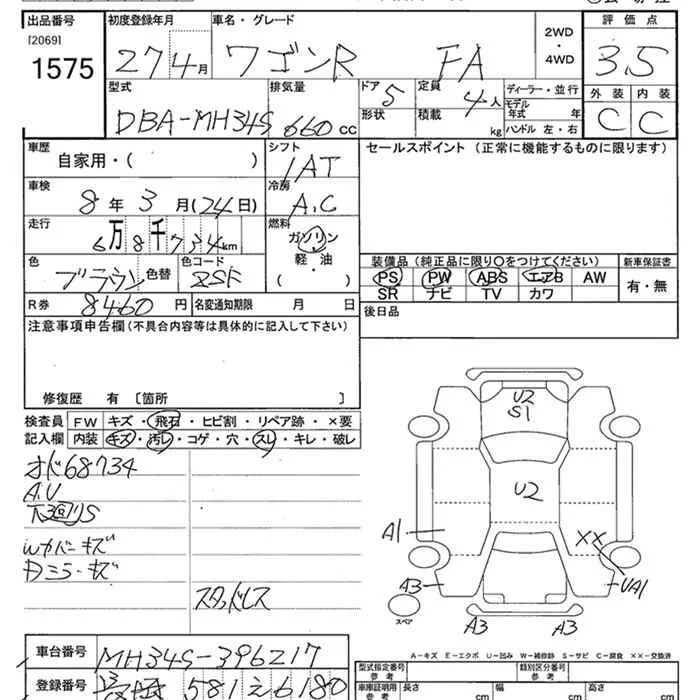 出品番号 初度登録年月 車名・グレード 2WD・4WD 評価点
[2069]
1575 27 4月 ワゴンR FA 3.5
型式 排気量 ドア 5 定員 4人 ディーラー・並行 外装 内装
DBA-MH34S 660cc 形状 積載 kg モデル年式 年 C C
ハンドル 左・右
車歴 シフト セールスポイント (正常に機能するものに限ります)
自家用・( ) IAT
車検 冷房
8年3月(24日) A.C
走行 燃料
6万8千734km ガソリン
軽・油
( )
色 色替 色コード 装備品 (純正品に限り〇をつけてください) 新車保証書
ブラウン ZSF PS PW ABS エアB AW 有・無
SR ナビ TV カワ
R券 8460円 名変通知期限 月 日 後日品
注意事項申告欄 (不具合内容等は具体的に記入して下さい)
修復歴 有 〔箇所 〕
検査員 FW キズ・飛石・ヒビ割・リペア跡・×要
記入欄 内装 キズ・汚レ・コゲ・穴・スレ・キレ・破レ
オド68734
A.U
下廻りS
Wカバーキズ
Dミラーキズ
スタッドレス
U2
S1
U2
A1
XX
A3
UA1
スペア
A3 A3
A-キズ E-エクボ U-凹み W-補修跡 S-サビ C-腐食 ××-交換済
車台番号 MH34S-396217
登録番号 581 え 6180
型式指定番号 参考 類別区分番号 参考
車庫証明用 参考 長さ cm 幅 cm 高さ cm